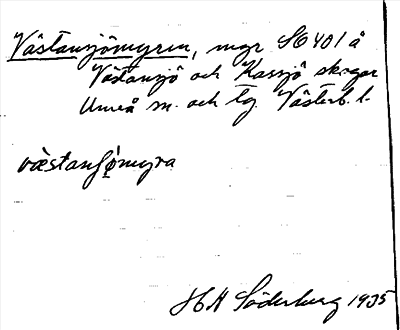 Västansjömyren, myr SO 401 å
Västansjö och Kassjö skogar
Umeå sn. och tg. Västerb. l.
væstanʃǫ̀myra
H. H. Söderburg 1935